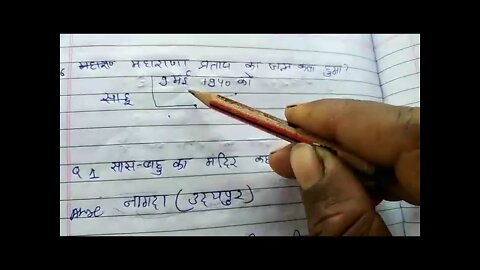 महाराणा प्रताप का जन्म कब हुआ?
9 मई 1540 को
साहू
Q 1 सास-बहु का मंदिर कह
Ans नागदा (उदयपुर)